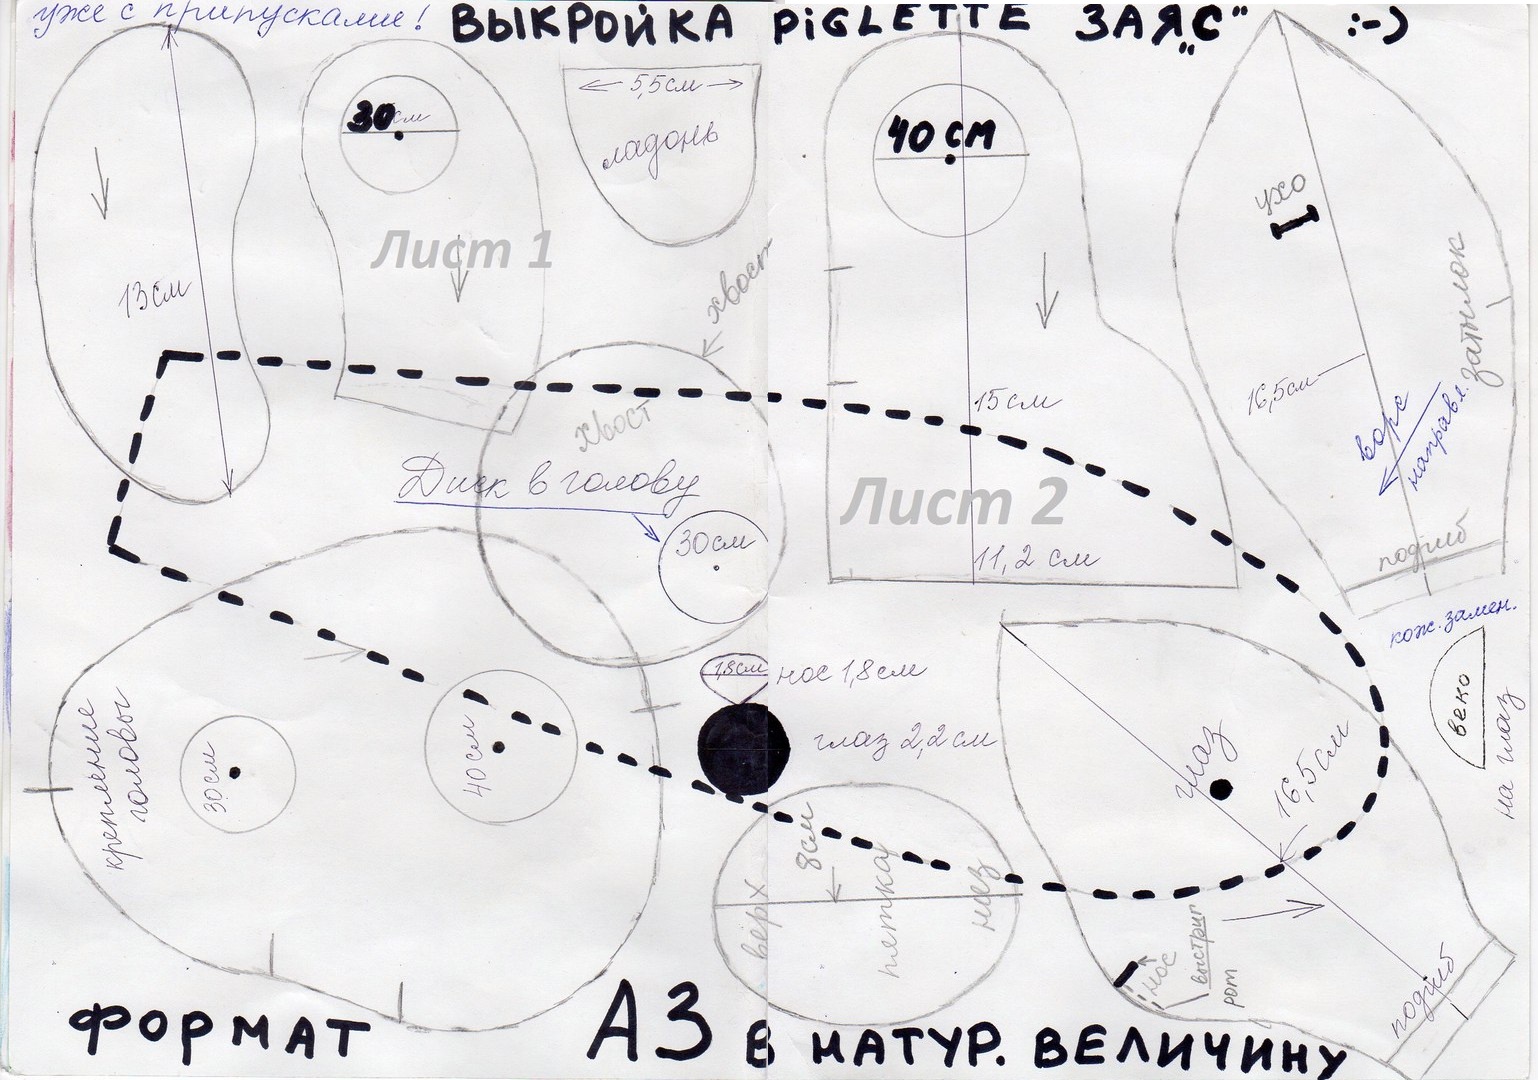 уже с припусками!
ВЫКРОЙКА PiGLETTE ЗАЯ„С“ :-)
30 см
5,5см
ладонь
40 см
ухо
Лист 1
13см
хвост
затылок
16,5см
ворс
направл.
15см
хвост
Диск в голову
30см
Лист 2
11,2 см
подгиб
кож.замен.
веко
на глаз
1,8см
нос 1,8см
глаз 2,2см
глаз
16,5см
крепление
головы
30см
40см
8см
верх
пятка
низ
нос
выстриг
рот
подгиб
ФОРМАТ А3 В НАТУР. ВЕЛИЧИНУ